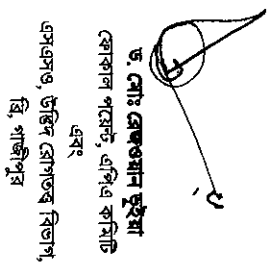 ড. মোঃ রেজওয়ান ভুইয়া
ফোকাল পয়েন্ট, এপিএ কমিটি
এবং
এসএসও, উদ্ভিদ রোগতত্ত্ব বিভাগ,
ব্রি, গাজীপুর